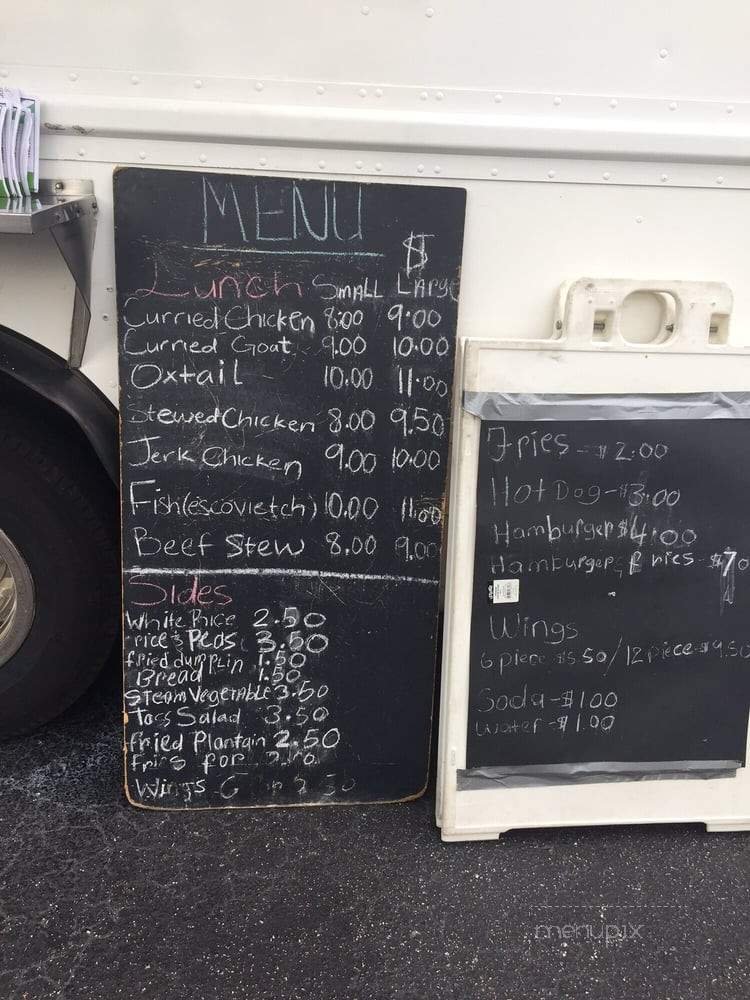 MENU
$
Lunch SMALL Large
Curried Chicken 8:00 9:00
Curried Goat 9.00 10:00
Oxtail 10.00 11:00
Stewed Chicken 8.00 9.50
Jerk Chicken 9.00 10.00
Fish(escovietch) 10.00 11:00
Beef Stew 8.00 9.00
Sides
White Rice 2.50
rice & Peas 3.50
fried dumplin 1.50
Bread 1.50
Steam Vegetable 3.50
Toss Salad 3.50
fried Plantain 2.50
for
Wings 6
Fries - $2.00
Hot Dog - $3.00
Hamburger $4.00
Hamburger & Fries - $7.0
Wings
6 piece $5.50 / 12 piece - $9.50
Soda - $1.00
Water - $1.00
menupix